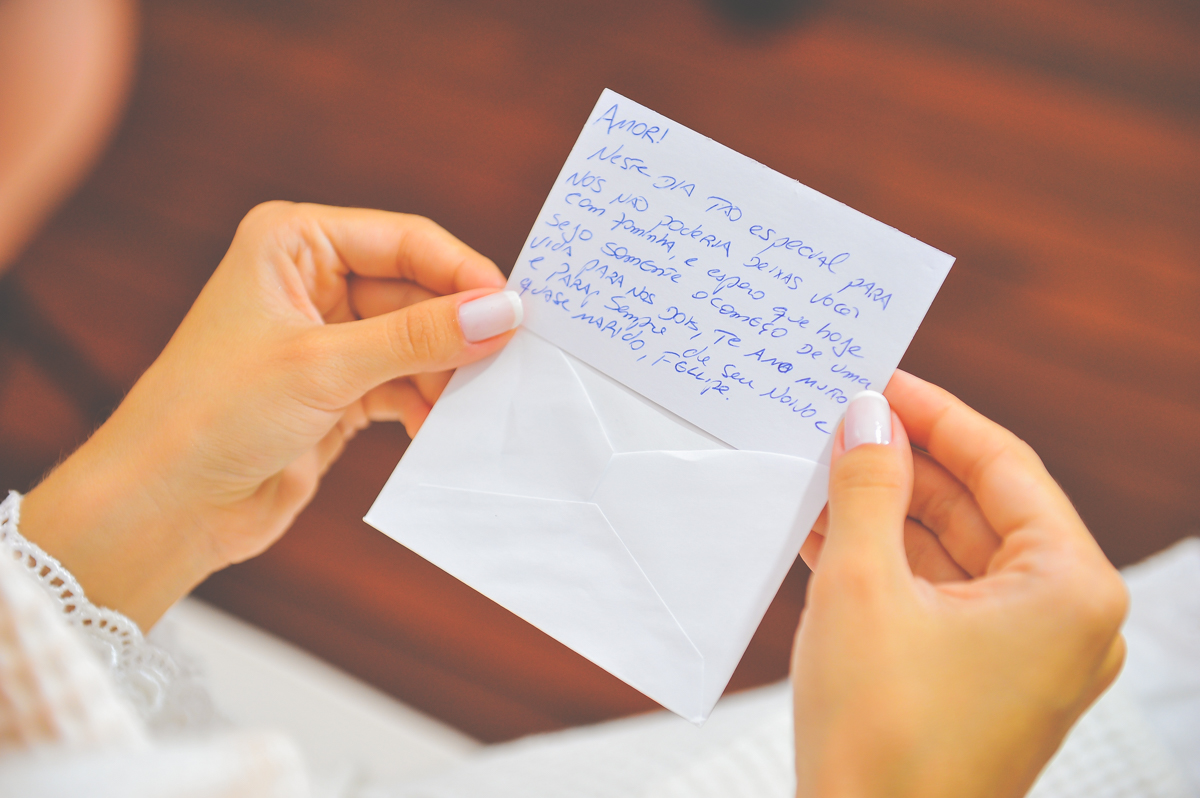 AMOR!
NESTE DIA TAO especial PARA
NÓS NAO poderia DEIXAR VOCÊ
com fominha, e espero que hoje
sejo somente o começo de uma
VIDA PARA NOS DOIS, TE AMO MUITO
e PARA sempre de seu NOIVO e
quase MARIDO, FELLIPE.